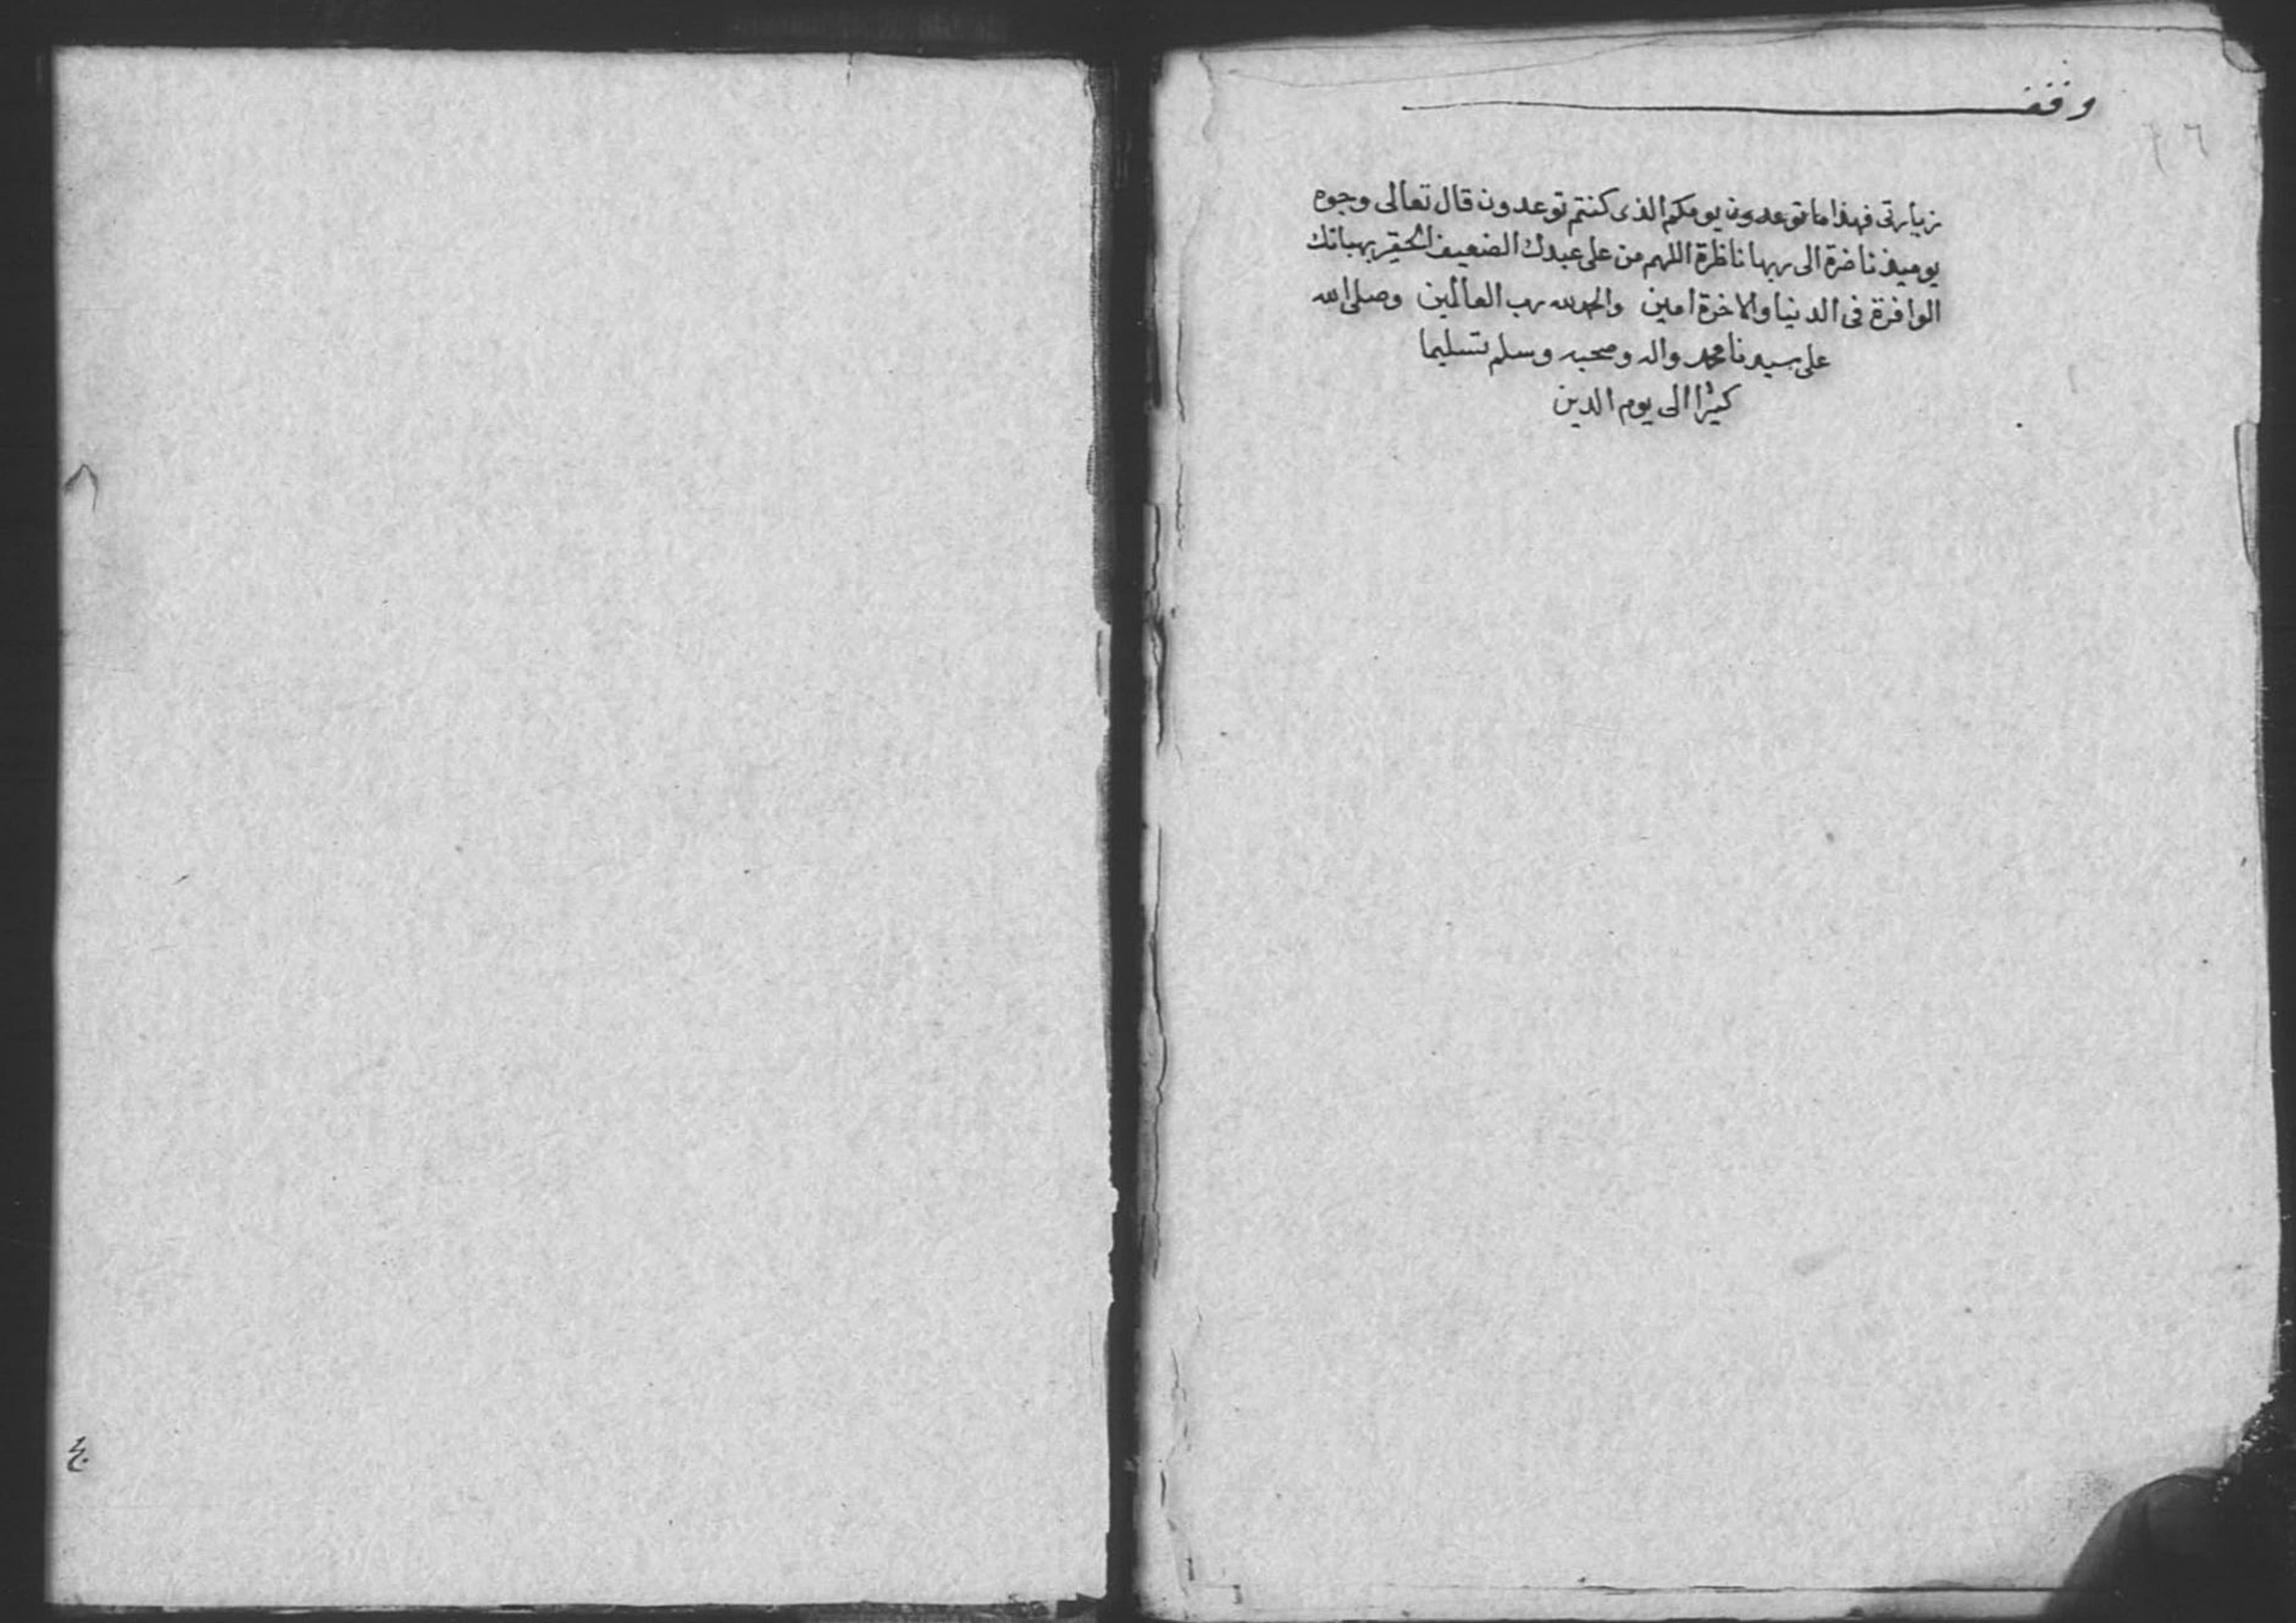 وقف
زيارتى فهذا ما توعدون يومكم الذى كنتم توعدون قال تعالى وجوه
يوميذ ناضرة الى ربها ناظرة اللهم من على عبدك الضعيف الحقير بهباتك
الوافرة فى الدنيا والاخرة امين والحمد لله رب العالمين وصلى الله
على سيدنا محمد واله وصحبه وسلم تسليما
كثيرا الى يوم الدين